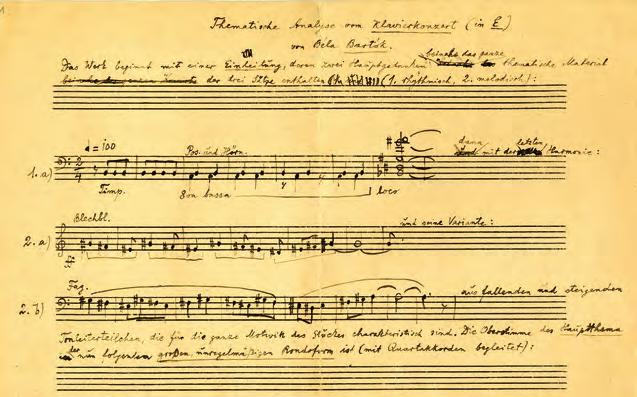 1.
Thematische Analyse vom Klavierkonzert (in E)
von Béla Bartók.
beinahe das ganze
Das Werk beginnt mit einer Einleitung, deren zwei Hauptgedanken thematische Material
der drei Sätze enthalten (1. rhythmisch, 2. melodisch):
♩ = 100
Pos. und Hörn.
dann letzten
und mit der Harmonie:
1. a)
Timp.
8va bassa
loco
Blechbl.
und seine Variante:
2. a)
Fag.
aus fallenden und steigenden
2. b)
Tonleiterteilchen, die für die ganze Motivik des Stückes charakteristisch sind. Die Oberstimme des Hauptthema
der
in nun folgendem großen, unregelmäßigen Rondoform ist (mit Quartakkorden begleitet):